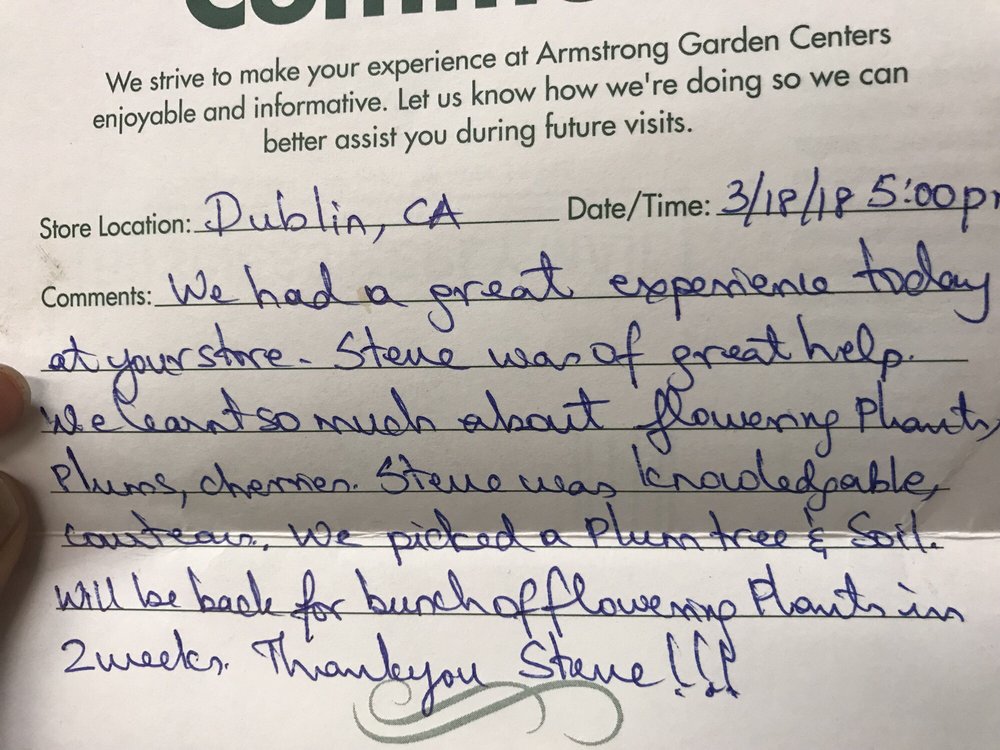 We strive to make your experience at Armstrong Garden Centers
enjoyable and informative. Let us know how we're doing so we can
better assist you during future visits.
Store Location: Dublin, CA Date/Time: 3/18/18 5:00pm
Comments: We had a great experience today
at your store. Steve was of great help.
We learnt so much about flowering plants,
plums, cherries. Steve was knowledgeable,
courteous. We picked a plum tree & Soil.
Will be back for bunch of flowering plants in
2 weeks. Thankyou Steve!!!